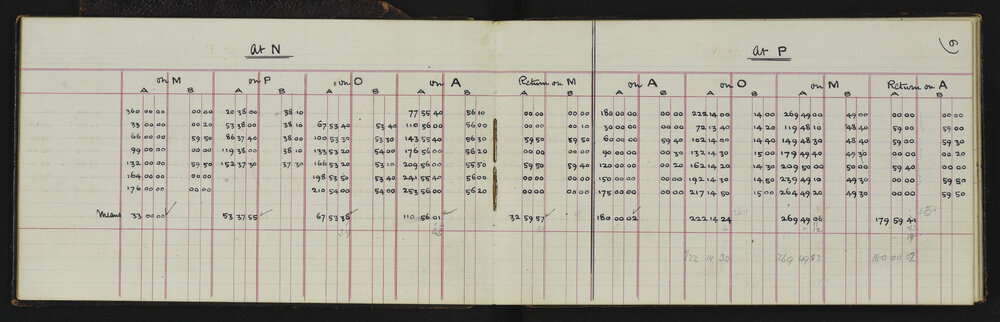 At N At P 9
on M on P on O on A Return on M on A on O on M Return on A
A B A B A B A B A B A B A B A B A B
360 00 00 00 00 20 38 00 38 10 77 55 40 56 10 180 00 00 00 00 222 14 00 14 00 269 49 00 49 00
33 00 00 00 20 53 38 00 38 10 67 53 40 53 40 110 56 00 56 00 00 00 00 10 30 00 00 00 00 72 13 40 14 20 119 48 10 48 40 59 00 00 00
66 00 00 59 50 86 37 40 38 00 100 53 30 53 30 143 55 40 56 30 59 50 59 50 60 00 00 59 40 102 14 00 14 40 149 48 30 48 40 59 00 59 30
99 00 00 00 00 119 38 00 38 10 133 53 20 54 00 176 56 00 56 20 00 00 00 00 90 00 00 00 30 132 14 30 15 00 179 49 40 49 30 00 00 00 20
132 00 00 59 50 152 37 30 37 30 166 53 20 53 10 209 56 00 55 50 59 50 59 40 120 00 00 00 20 162 14 20 14 30 209 50 00 50 00 59 40 59 50
164 00 00 00 00 198 53 50 53 40 241 55 40 56 00 00 00 00 00 150 00 00 00 00 192 14 30 14 50 239 49 10 49 30 00 00 59 50
176 00 00 00 00 210 54 00 54 00 253 56 00 56 20 00 00 00 00 175 00 00 00 00 217 14 50 15 00 264 49 20 49 30 00 00 59 50
Means 33 00 00 53 37 55 67 53 38 110 56 01 32 59 57 180 00 02 222 14 24 269 49 06 179 59 41
39 12
19
222 14 30 269 49 180 00 02